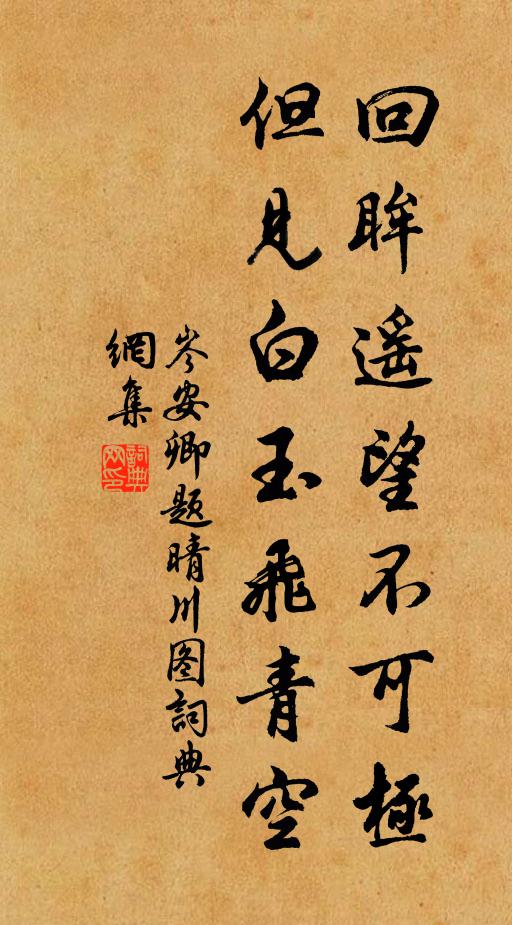 回眸遥望不可極
但見白玉飛青空
岑安卿題晴川图詞典
網集
詞典
网印